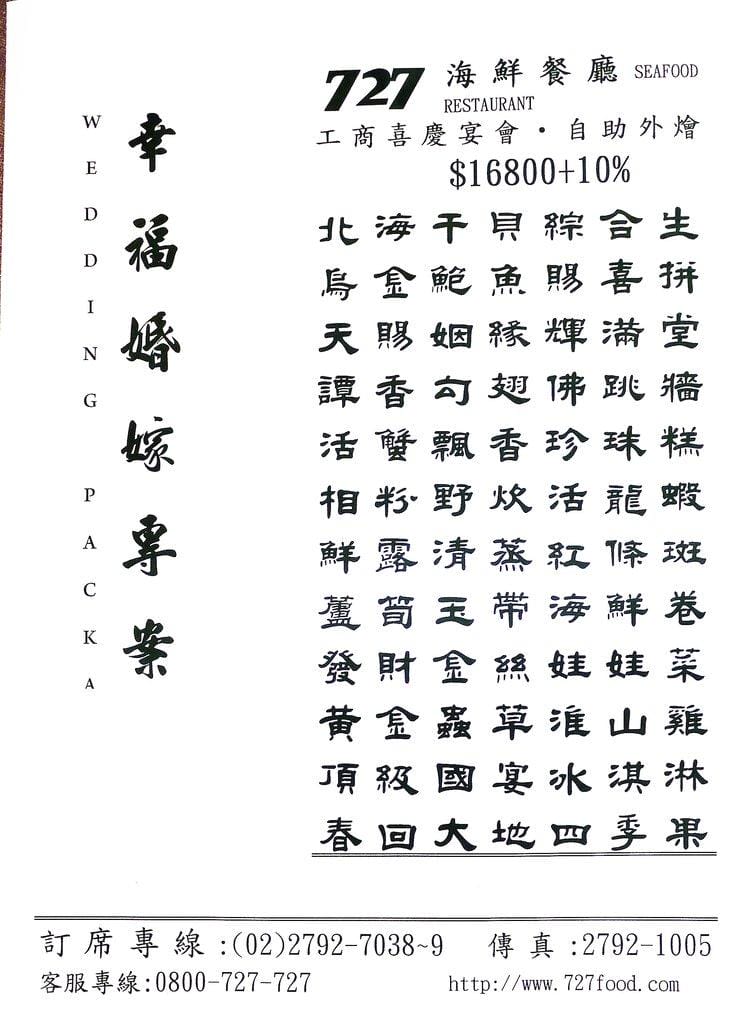 727 海鮮餐廳 SEAFOOD
RESTAURANT
工商喜慶宴會·自助外燴
$16800+10%
幸福婚嫁專案
WEDDING PACKA
北海干貝綜合生
烏金鮑魚賜喜拼
天賜姻緣輝滿堂
譚香勾翅佛跳牆
活蟹飄香珍珠糕
相粉野炊活龍蝦
鮮露清蒸紅條斑
蘆筍玉帶海鮮卷
發財金絲娃娃菜
黃金蟲草淮山雞
頂級國宴冰淇淋
春回大地四季果
訂席專線:(02)2792-7038~9 傳真:2792-1005
客服專線:0800-727-727 http://www.727food.com